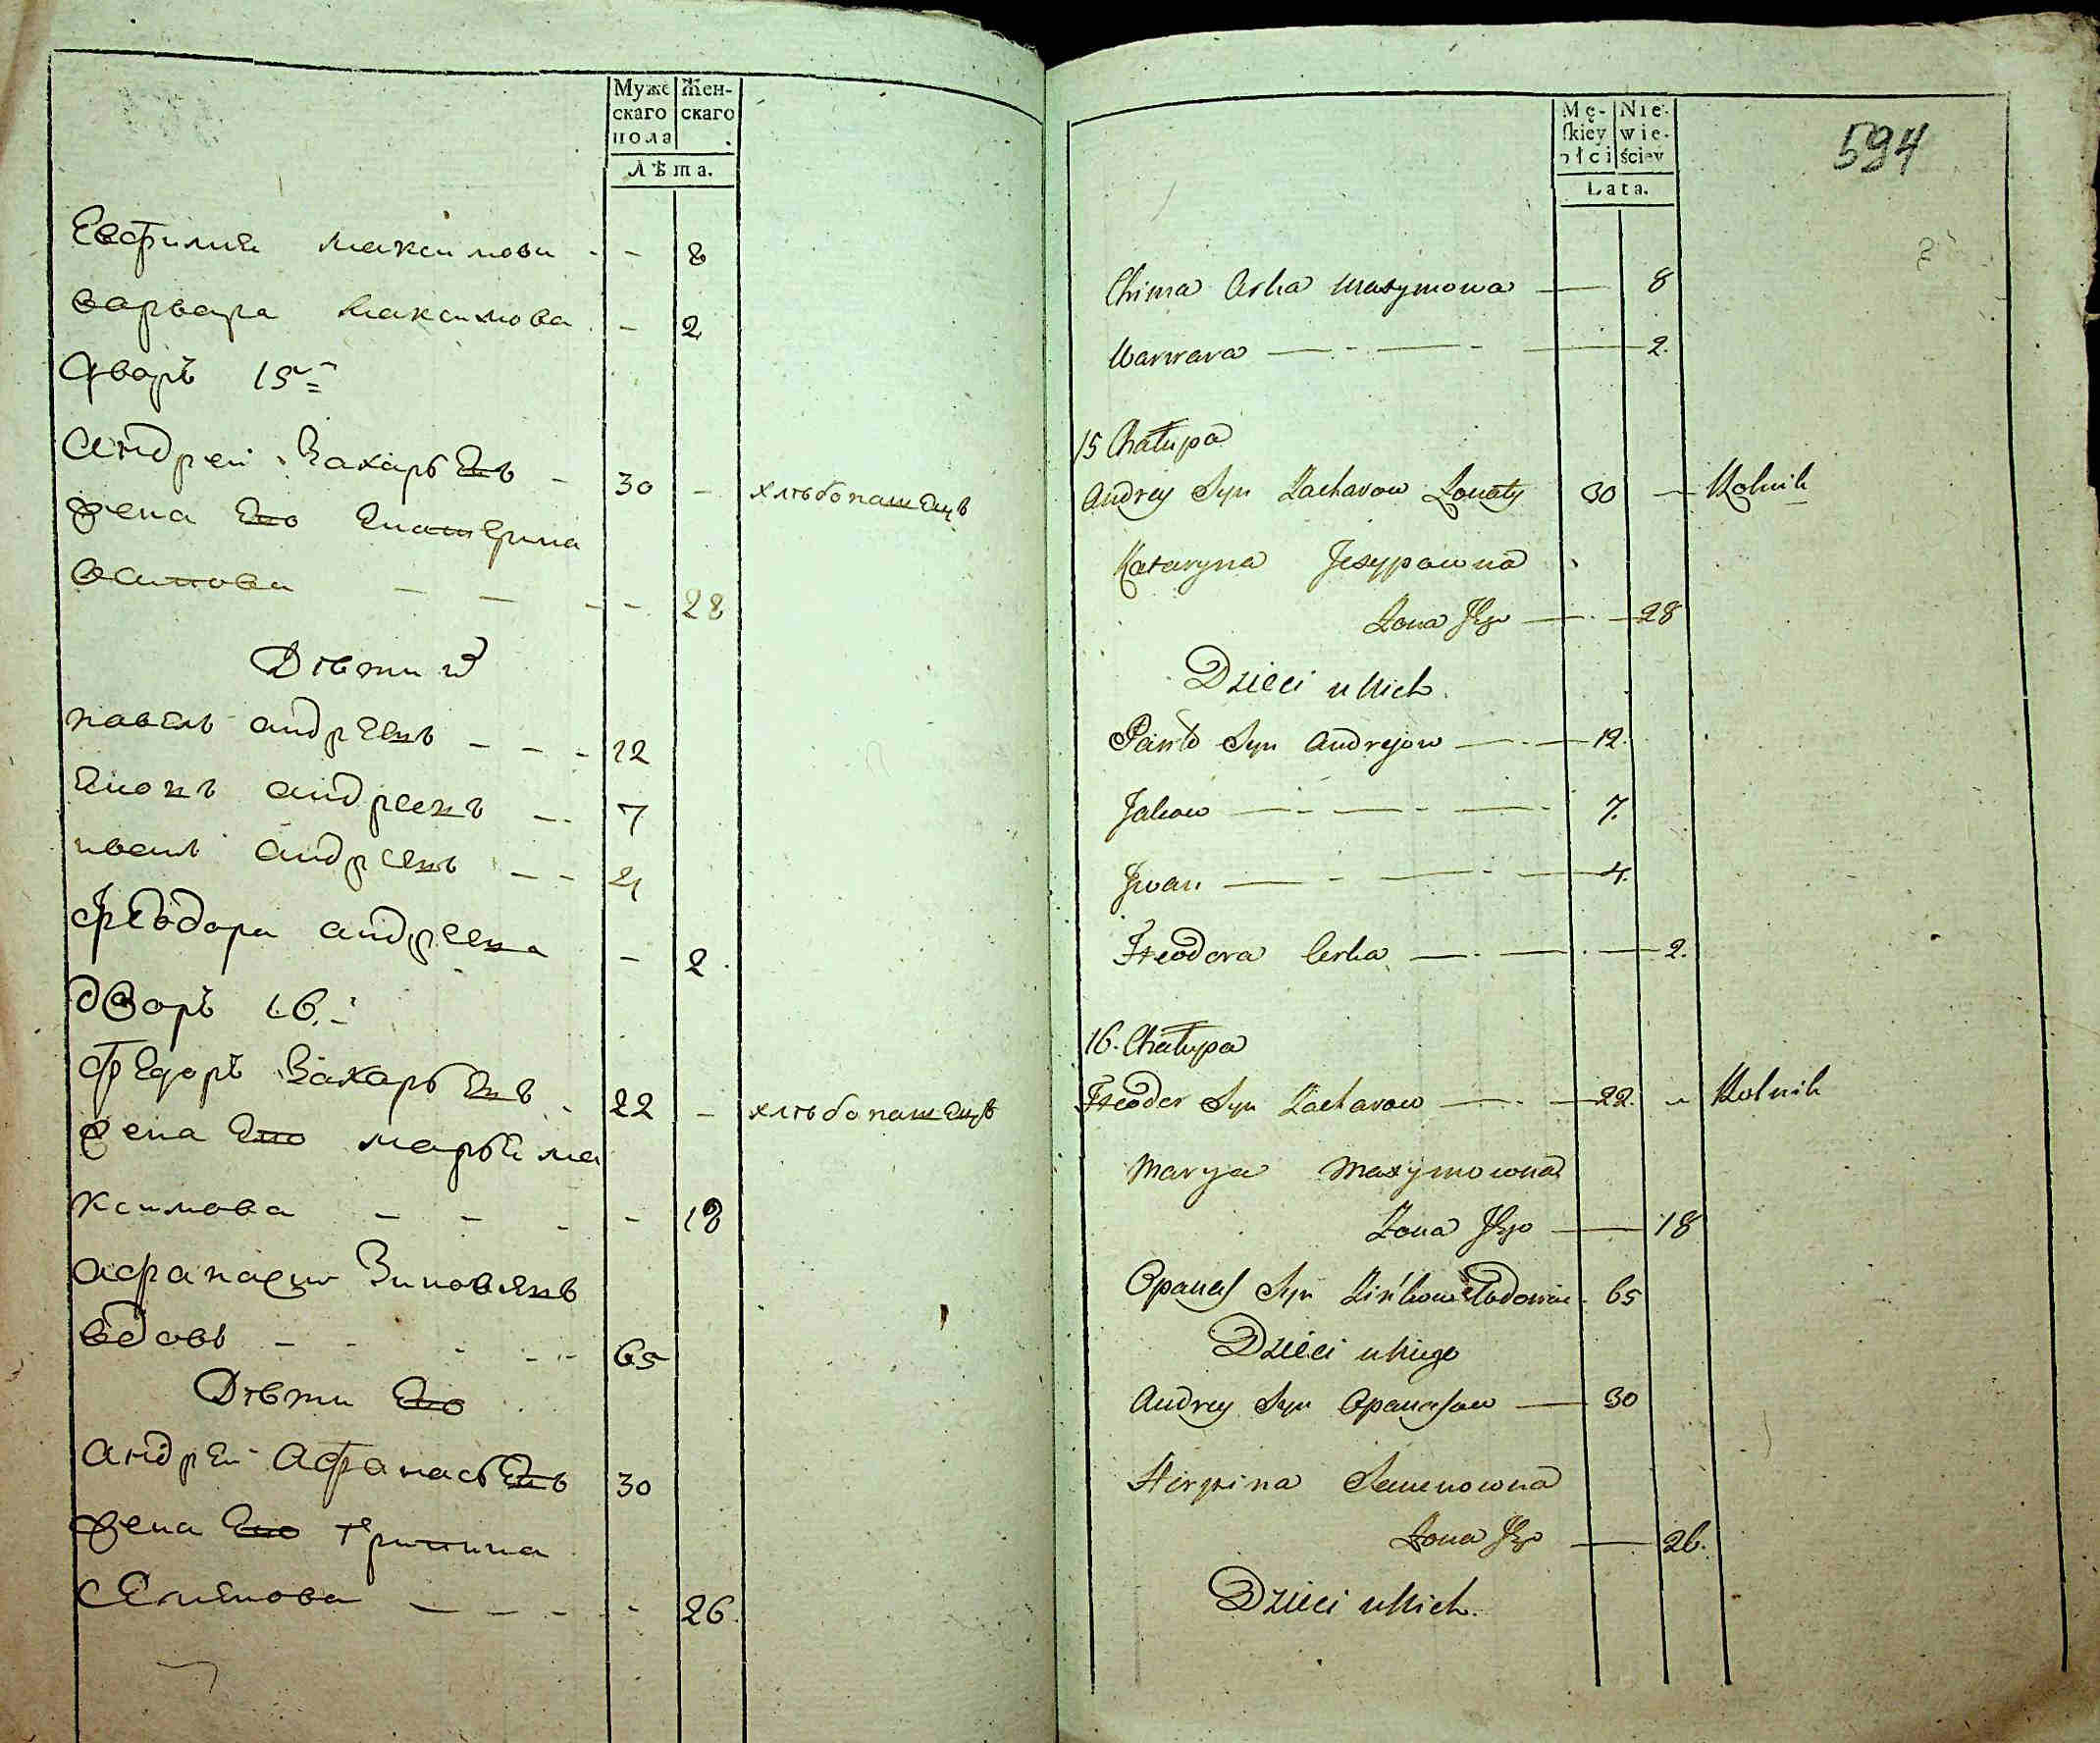 Муже Жен-
скаго скаго
пола
Лѣта.
Евфимия максимова - - 8
варвара максимова - - 2
дворъ 15
андрей Захарьевъ - 30 - хлѣбопашецъ
жена Его Екатерина
осипова - - - - 28
Дѣти их
павелъ андреевъ - - - 12
Яковъ андреевъ - - 7
иванъ андреевъ - - 4
Феодора андреева - 2
дворъ 16
Федоръ Захарьевъ - 22 - хлѣбопашецъ
жена Его марья ма
ксимова - - - - 18
афанасии Зиновьевъ
вдовъ - - - - - 65
Дѣти Его
андрей Афанасьевъ 30
жена Его
Семенова - - - - 26
Mę- Nie-
skiey wie-
płci ściey
Lata.
594
Chima Corka Maxymowa — 8
Warwara — - — - — 2.
15 Chałupa
Andrey Syn Zacharow 30 — Rolnik
Kataryna Jesypowna
Zona Jego — - — 28
Dzieci u Nich.
Pawło Syn Andrejow — - — 12.
Jakow — - — - — - 7.
Jwan — - — - — 4.
Fteodora Corka — - — - — 2.
16. Chałupa
Fteodor Syn Zacharow — - — 22. - Rolnik
Marya Maxymowna
Zona Jego — 18
Opanas Syn Zińkow Wdowiec - 65
Dzieci u Niego
Andrey Syn Opanasow — 30
Hirpina Semenowna
Zona Jego — 26.
Dzieci u Nich.